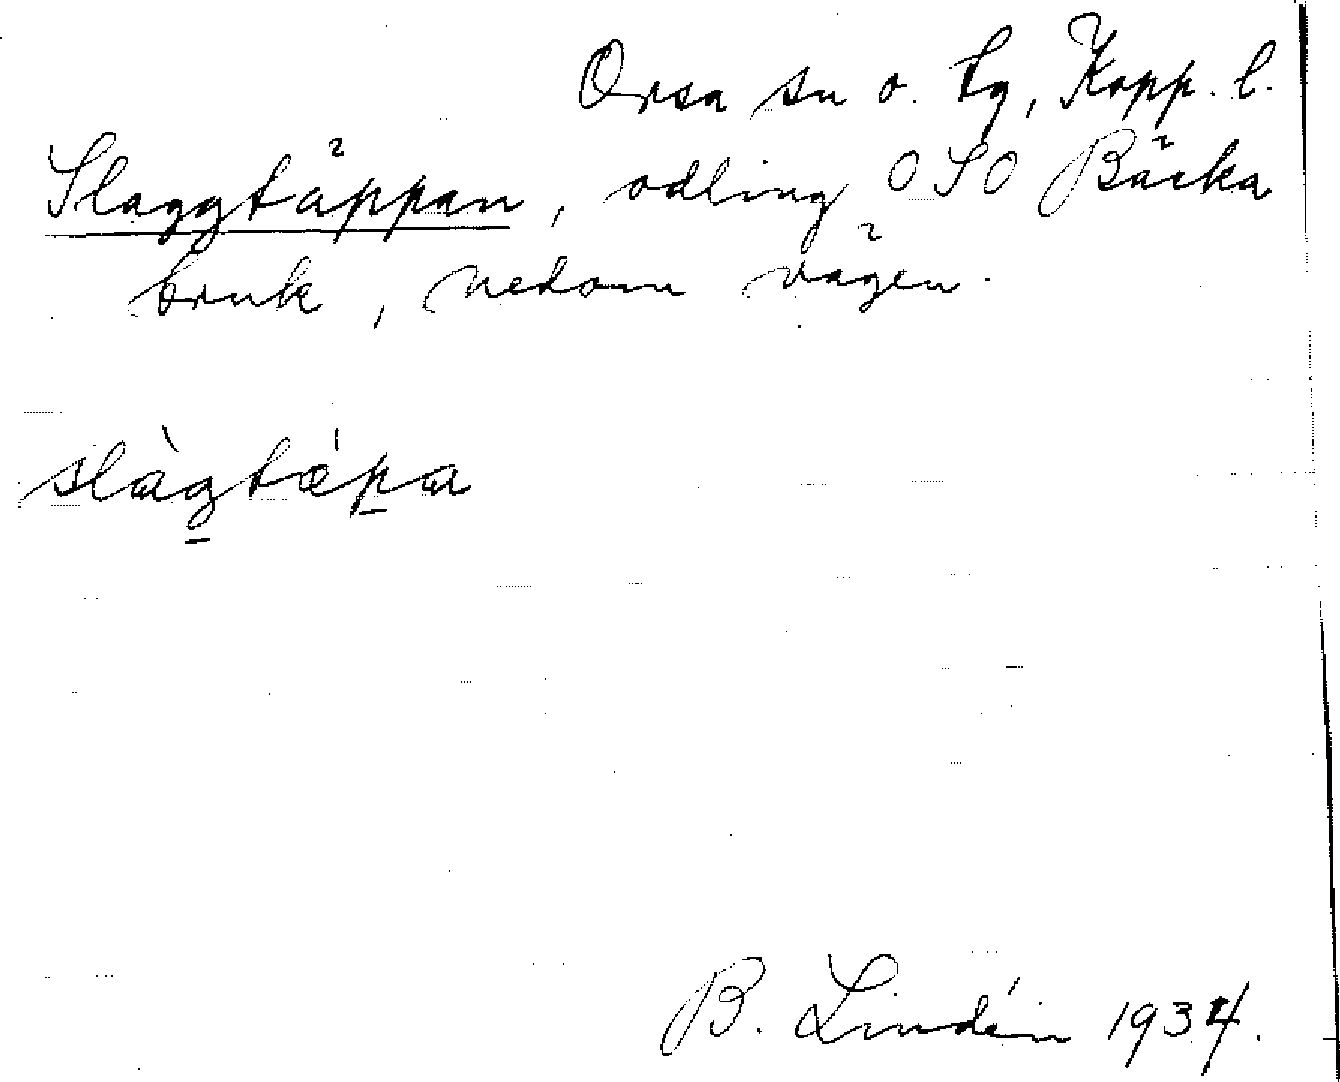 Orsa sn o. tg, Kopp. l.
Slaggtäppan, odling OSO Bäcka
bruk, nedom vägen.
slàg̱tǽp̱a
B. Lindén 1934.